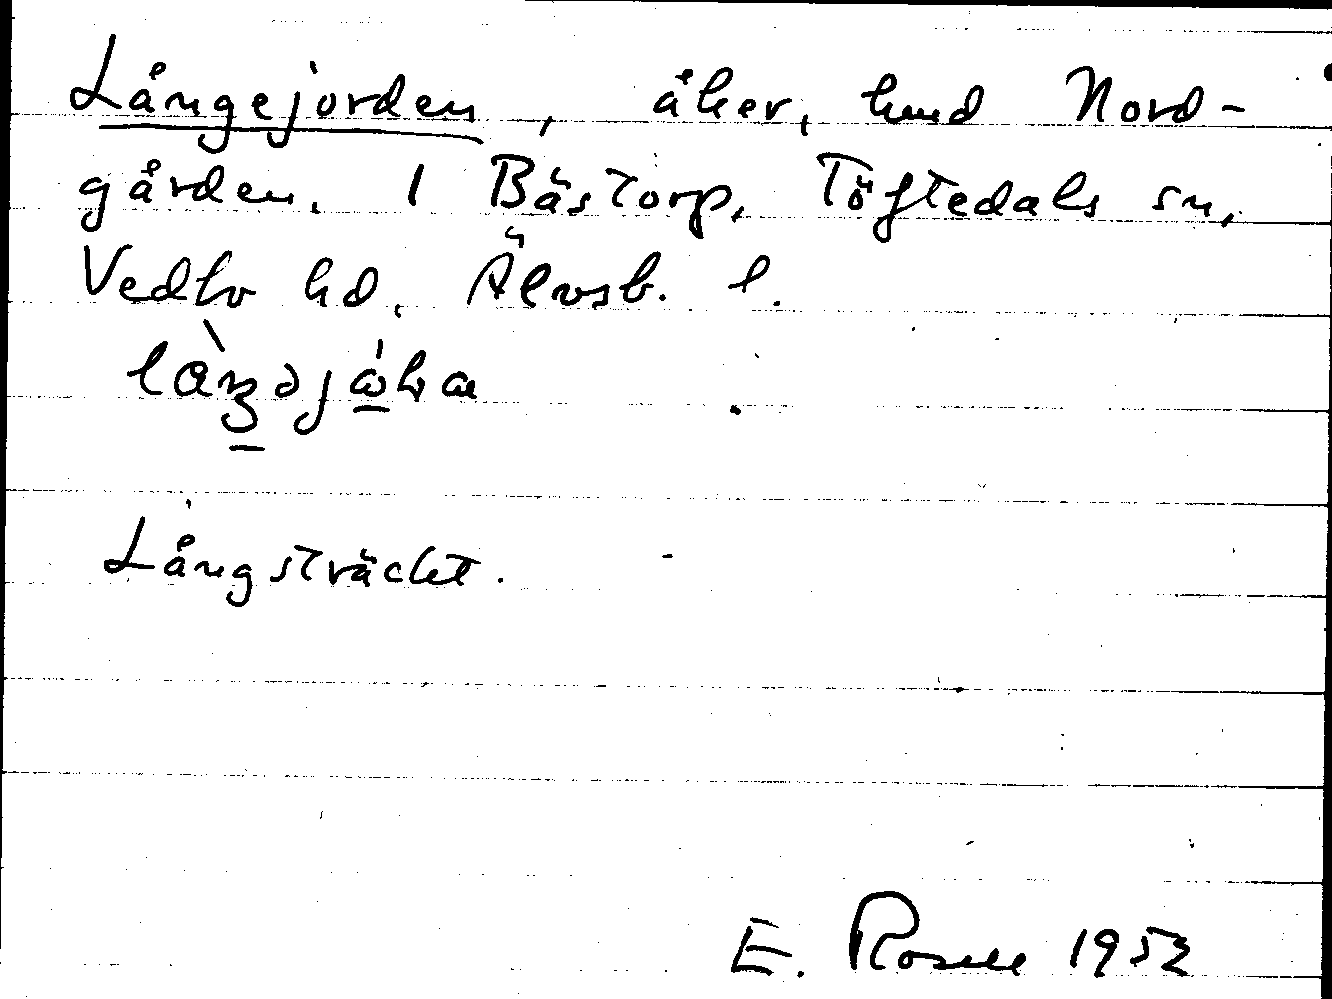 Långejorden, åker, hmd Nord-
gården. 1 Bästorp, Töftedals sn,
Vedbo hd. Älvsb. l.
Långsträckt.
E. Rosell 1952